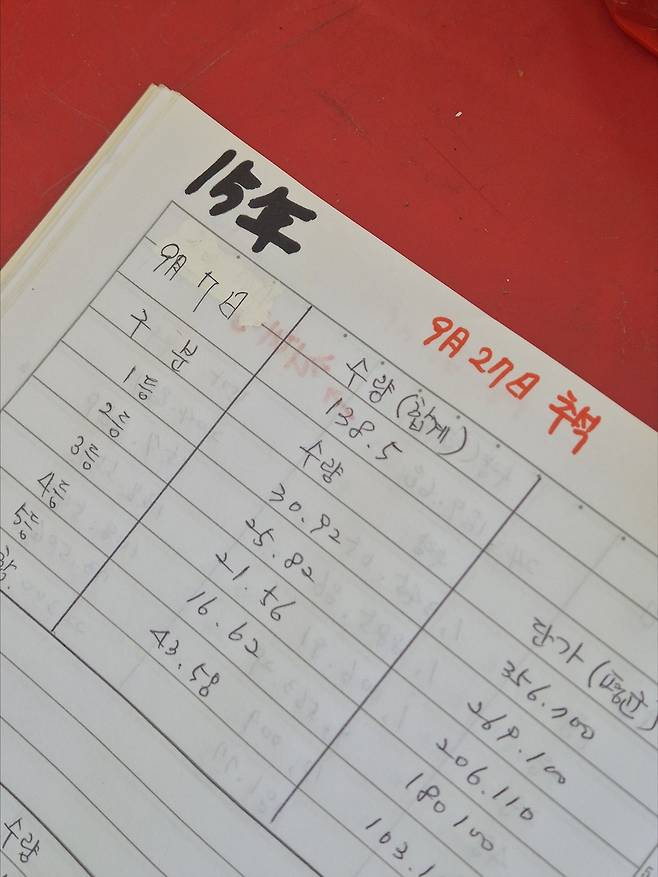 15年
9月 27日 추석
9月 7日
수량 (합계)
138.5
구 분
수량
단가 (평균)
1등
30.92
356.700
2등
25.82
268.100
3등
21.56
206.110
4등
16.62
180100
5등
43.58
103.1
수량